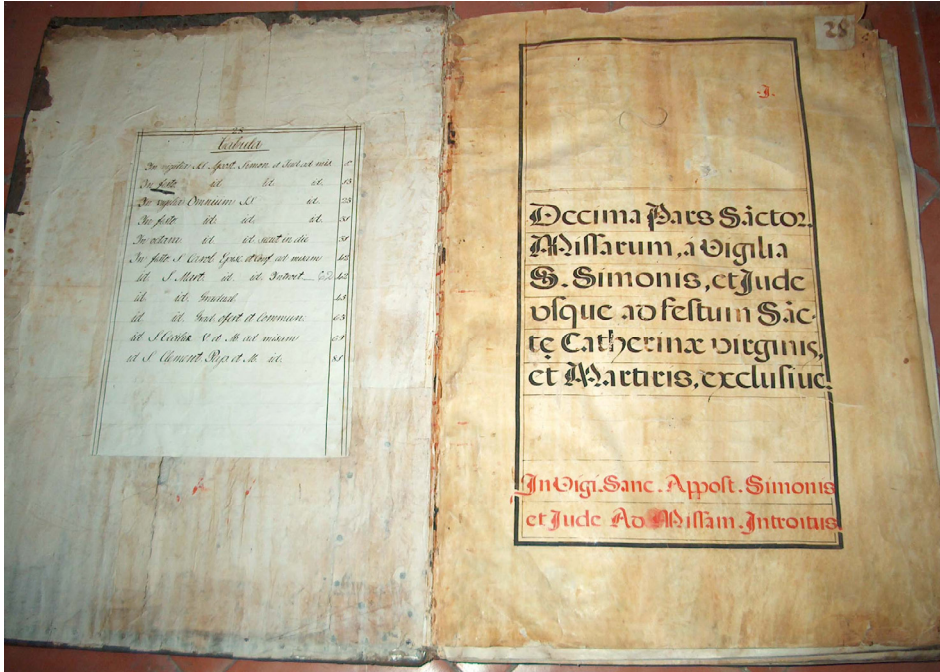 28
Tabula
In vigilia SS Apost. Simon. et Jud. ad mis.
In festo id. id. id.
In vigilia Omnium SS. id. 23
In festo id. id. id. 31
In octava id. id. sicut in die 31
In festo S. Carol. Epis. et Conf. ad missam
id. S. Mart. id. id. Introit
id. id. Gradual
id. id. Grad. ofert. et Commun.
id. S. Cecilix V. et M. ad missam
id. S. Clement. Pap. et M. id.
28
.I.
Decima Pars Sãctor.
Missarum, a Vigilia
S. Simonis, et Jude
vsque ad festum Sãc-
tę Catherinæ virginis,
et Martiris, exclusiue.
In Vigi. Sanc. Appost. Simonis
et Jude Ad Missam. Introitus